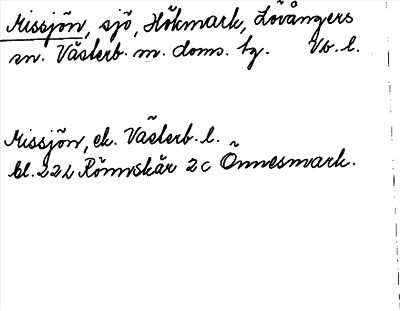 Missjön, sjö, Hökmark, Lövångers
sn. Västerb. m. doms. tg. Vb. l.
Missjön, ek. Västerb. l.
bl. 22L Rönnskär 2c Önnesmark.